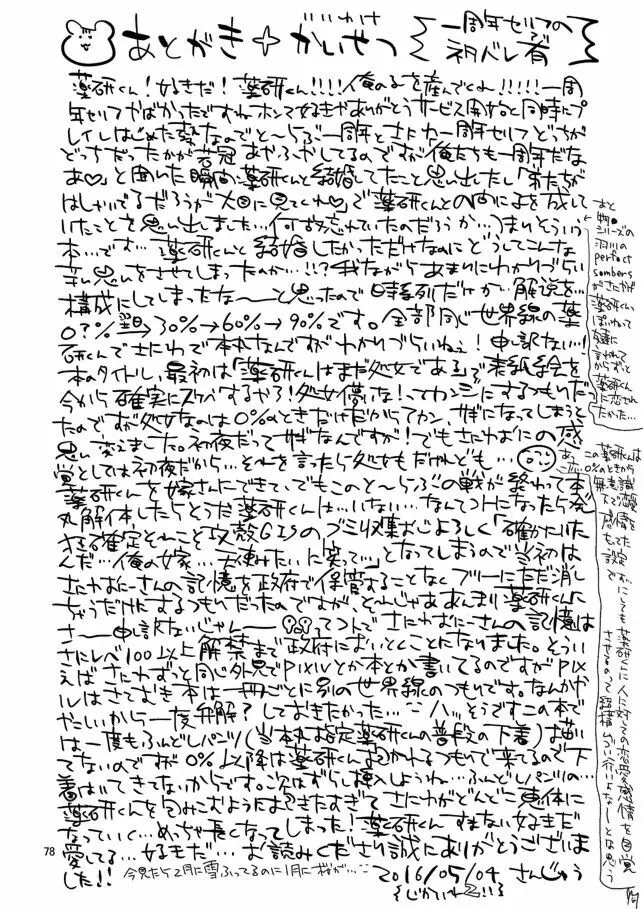 あとがき+かいせつ
一周年セリフの
ネタバレ有
薬研くん!好きだ!薬研くん!!!!人俺の子を産んでくれ!!!!!一周
年セリフやばかったですねホンマ好きやありがとうサービス開始と同時にプ
レイしはじめた のでと〜らぶ一周年とさにわ一周年セリフどっちが
どっちだったかが若冠あやふやしてるのですが俺たちも一周年だな
あ♡」と聞いた瞬間薬研くんと結婚してたこと思い出したし「新たちが
はしゃいでるだろうが大目に見てくれ♡」で薬研くんとの間に子を成して
いたことを思い出しました…(何故忘れていたのだろうか…)まぁそういう
本…です…薬研くんと結婚したかっただけなのにどうしてこんな
辛い思いをさせてしまったのか…!!?我ながらあまりにわかりづらい
構成にしてしまったな〜〜と思ったので時系列だけか…解説を…
0?%→30%→60%→90%です。全部同じ世界線の薬
研くんでさにわで本丸なんですがわかりづらいねぇ!申し訳ない!
本のタイトル、最初は「薬研くんはまだ処女である」で表紙絵を
今から確実にスケベするやろ!処女 な!ってカンジにするつもりだっ
たのですが処女なのは0%のときだけだからアカン サギになってしまうと
思い変えました。初夜だってサギなんですが!でもさにわにの感
覚としては初夜だから…それを言ったら処女もだけれども…
薬研くんを嫁さんにできて、でもこのと〜らぶの戦が終わって本
丸解体したらとうた薬研くんは…いない…なんてつトになったら発
する確定とれこと攻殻GISのゴミ収集おじよろしく「確かにいた
んだ…俺の嫁…天使みたいに笑って…」となってしまうので当初は
さにわおにーさんの記憶を政府で保管することなくフツーにただ消し
ちゃうだけにするつもりだったのですが、それじゃああんまり薬研くんに
さ〜〜申し訳ないじゃん〜〜ってコトでさにわおにーさんの記憶は
さにレベ100以上解禁まで政府においとくことになりました。そうい
えばさにわずっと同じ外見でpixivとか本とか書いてるのですがpix
ルはさておき本は一冊ごとに別の世界線のつもりです。なんかや
やこしいから一度弁解?しておきたかった…ハッそうですこの本で
は一度もふんどしパンツ(当本丸指定薬研くんの普段の下着)描い
てないのですが0%以降は薬研くん抱かれるつもりで来てるので下
着はいてきてないからです。次はずらし挿入しようね…ふんどしパンツの…
薬研くんを包みこむように抱きたすぎてさにわがどんどこ 体に
なっていく…めっちゃ長くなってしまった!薬研くんすまない好きだ
愛してる…好きだ…お読みくださり誠にありがとうございま
した!!
今見たら2月に雪ふってるのに1月に桜が…
2016/05/04 さんじゅう
あと
物●
シリーズの
羽川の
perfect
sombers
がさにわが
薬研くんっ
ぽいわって
言われて
からずっと
薬研くん
に恋され
たかった…
あ、この薬研くんは
0%のときから
無意識
で恋
感情を
もってた
設定
です…にしても薬研くんに人に対しての恋愛感情を自覚
させるのって 構 いよなーとは思う
78